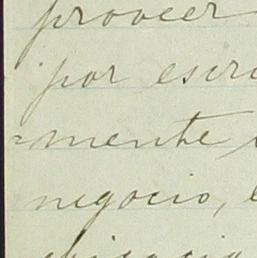 proveer
por escri
=mente
negocio,